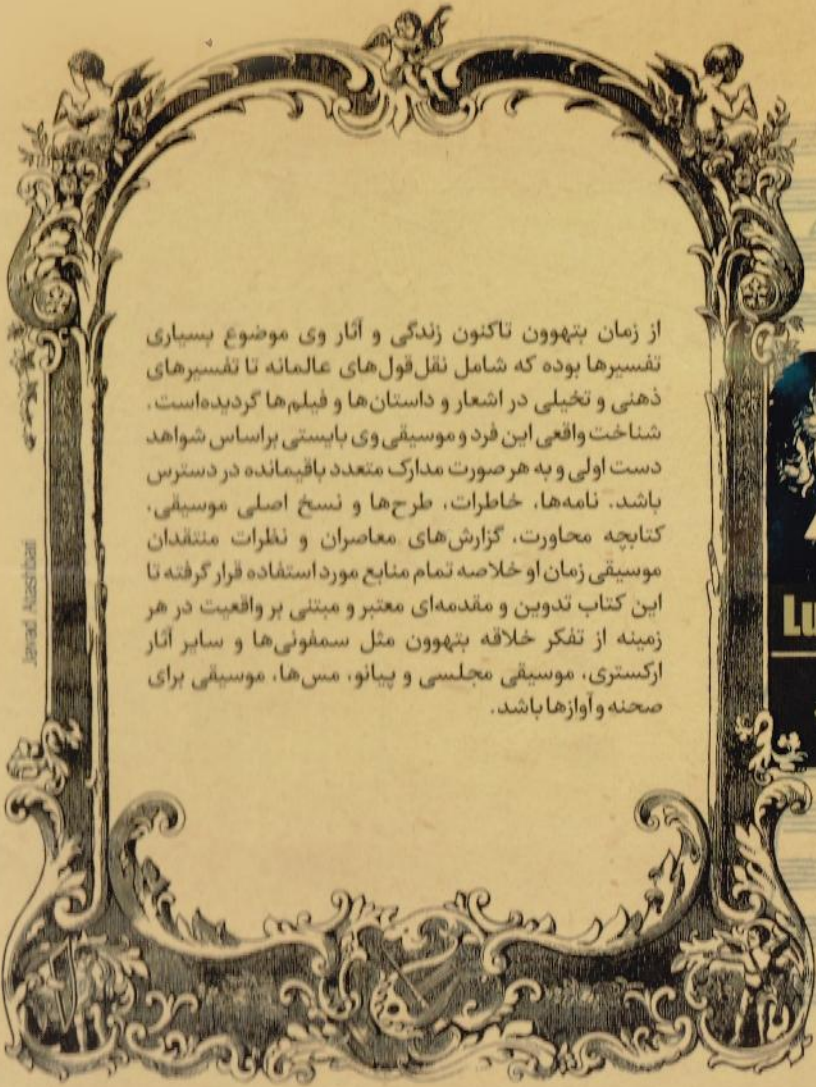 از زمان بتهوون تاکنون زندگی و آثار وی موضوع بسیاری
تفسیرها بوده که شامل نقل‌قول‌های عالمانه تا تفسیرهای
ذهنی و تخیلی در اشعار و داستان‌ها و فیلم‌ها گردیده‌است.
شناخت واقعی این فرد و موسیقی وی بایستی براساس شواهد
دست اولی و به هر صورت مدارک متعدد باقیمانده در دسترس
باشد. نامه‌ها، خاطرات، طرح‌ها و نسخ اصلی موسیقی،
کتابچه محاورت، گزارش‌های معاصران و نظرات منتقدان
موسیقی زمان او خلاصه تمام منابع مورد استفاده قرار گرفته تا
این کتاب تدوین و مقدمه‌ای معتبر و مبتنی بر واقعیت در هر
زمینه از تفکر خلاقه بتهوون مثل سمفونی‌ها و سایر آثار
ارکستری، موسیقی مجلسی و پیانو، مس‌ها، موسیقی برای
صحنه و آوازها باشد.
Javad
Lu